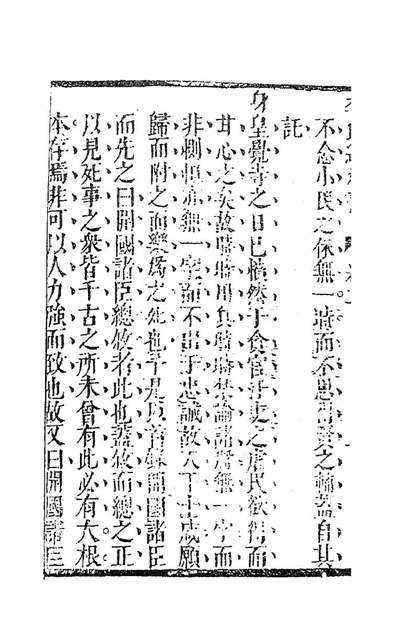 不念小民之保無一時而不思得賢之輔蓋自其
託
身皇覺寺之日已憤然于貪官汙吏之虐民欲得而
甘心之矣故時時用兵時時禁諭諸將無一字而
非惻怛亦無一字而不出于忠誠故天下士咸願
歸而附之而樂爲之死也于是以首錄開國諸臣
而先之曰開國諸臣總敘者此也蓋敘而總之正
以見死事之衆皆千古之所未曾有此必有大根
本存焉非可以人力強而致也故又曰開國諸臣